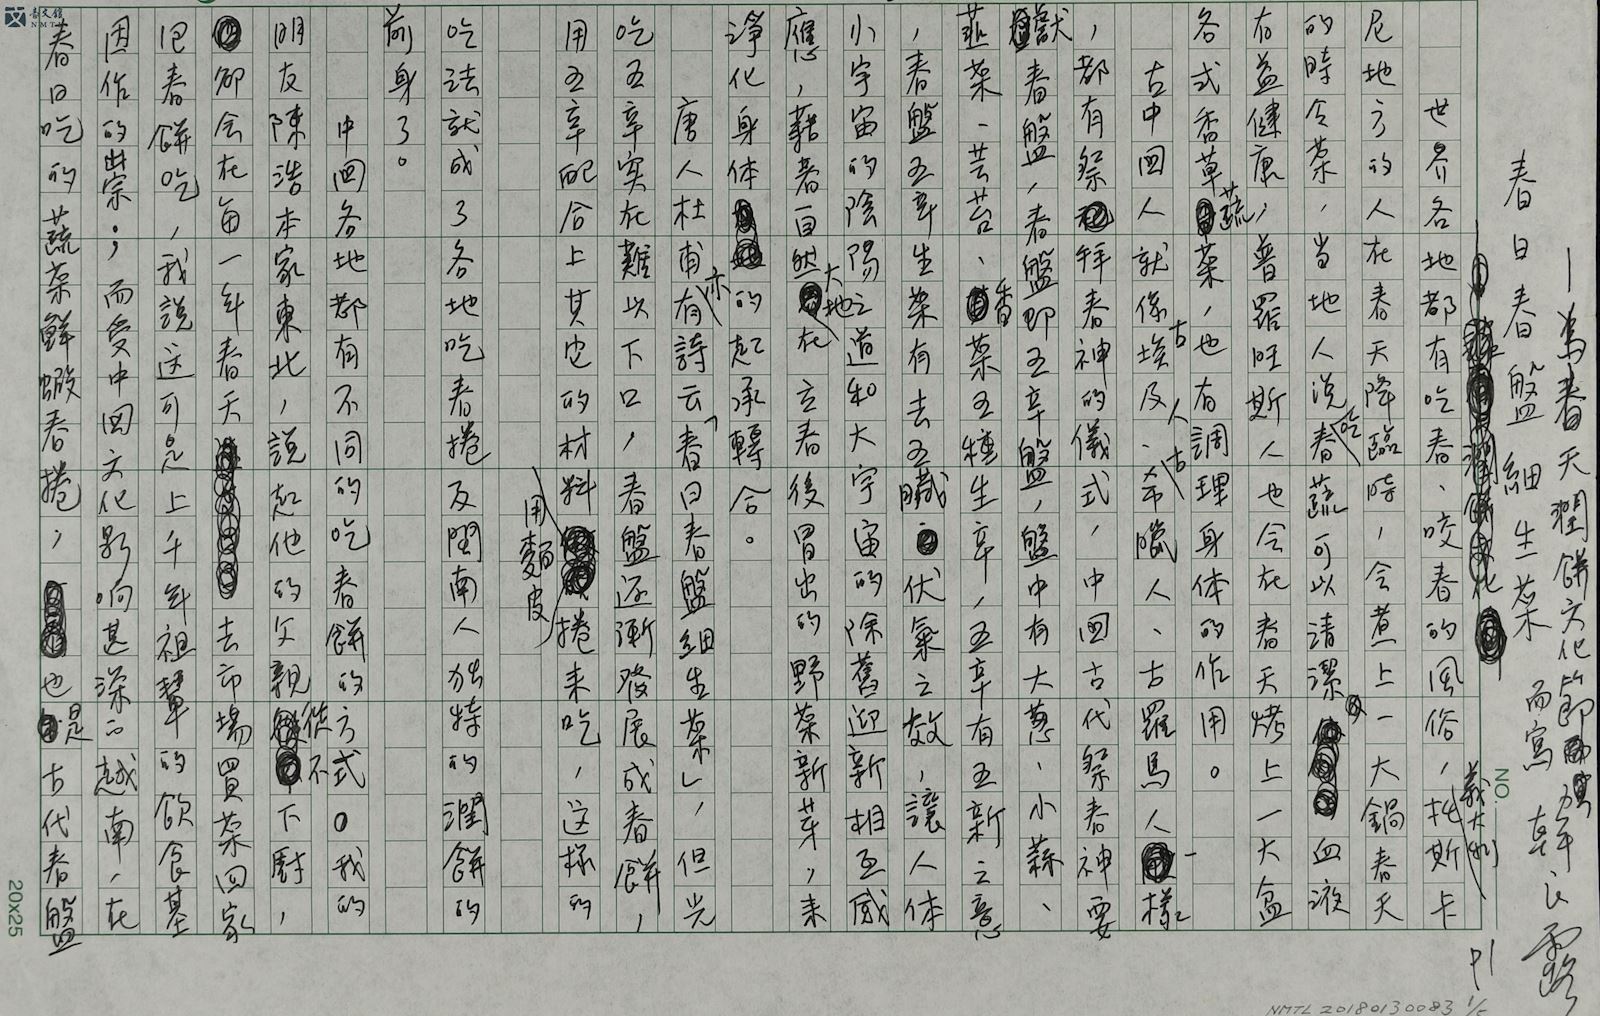 春日春盤細生菜
—為春天潤餅文化節而寫 韓良露
P1
世界各地都有吃春、咬春的風俗,義大利托斯卡
尼地方的人在春天降臨時,会煮上一大鍋春天
的時令菜,当地人說吃春蔬可以清潔血液
有益健康,普羅旺斯人也会在春天烤上一大盆
各式香草蔬菜,也有調理身体的作用。
古中囯人就係古埃及人、古希臘人、古羅馬人一樣
,都有祭拜春神的儀式,中囯古代祭春神要
獻春盤,春盤即五辛盤,盤中有大蔥、小蒜、
韭菜、芸苔、香菜五種生辛,五辛有五新之意
,春盤五辛生菜有去五臟伏氣之效,讓人体
小宇宙的陰陽之道和大宇宙的除舊迎新相互感
應,藉著自然大地在立春後冒出的野菜新芽,来
淨化身体的起承轉合。
唐人杜甫亦有詩云「春日春盤細生菜」,但光
吃五辛实在難以下口,春盤逐漸發展成春餅,
用五辛配合上其它的材料用麵皮捲来吃,这樣的
吃法就成了各地吃春捲及閩南人独特的潤餅的
前身了。
中囯各地都有不同的吃春餅的方式。我的
朋友陳浩本家東北,說起他的父親從不下廚,
卻会在每一年春天去市場買菜囬家
把春餅吃,我說这可是上千年祖輩的飲食基
因作的祟;而受中囯文化影响甚深的越南,在
春日吃的蔬菜鮮蝦春捲,也是古代春盤
20X25
NO.
NMTL 20180130083 1/5
臺文館
NMTL